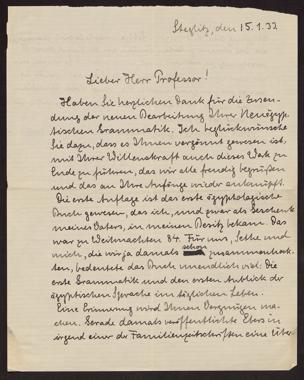 Steglitz, den 15.1.32
Lieber Herr Professor!
Haben Sie herzlichen Dank für die Zusen-
dung der neuen Bearbeitung Ihrer Neuägyp-
tischen Grammatik. Ich beglückwünsche
Sie dazu, dass es Ihnen vergönnt gewesen ist,
mit Ihrer Willenskraft auch dieses Werk zu
Ende zu führen, das wir alle freudig begrüßen
und das an Ihre Anfänge wieder anknüpft.
Die erste Auflage ist das erste ägyptologische
Buch gewesen, das ich, und zwar als Geschenk
meines Vaters, in meinen Besitz bekam. Das
war zu Weihnachten 84. Für uns, Sethe und
mich, die wir ja damals schon zusammenhock-
ten, bedeutete das Buch unendlich viel: Die
erste Grammatik und den ersten Anblick der
ägyptischen Sprache im täglichen Leben.
Eine Erinnerung wird Ihnen Vergnügen ma-
chen. Gerade damals veröffentlichte Ebers in
irgend einer der Familienzeitschriften eine Über